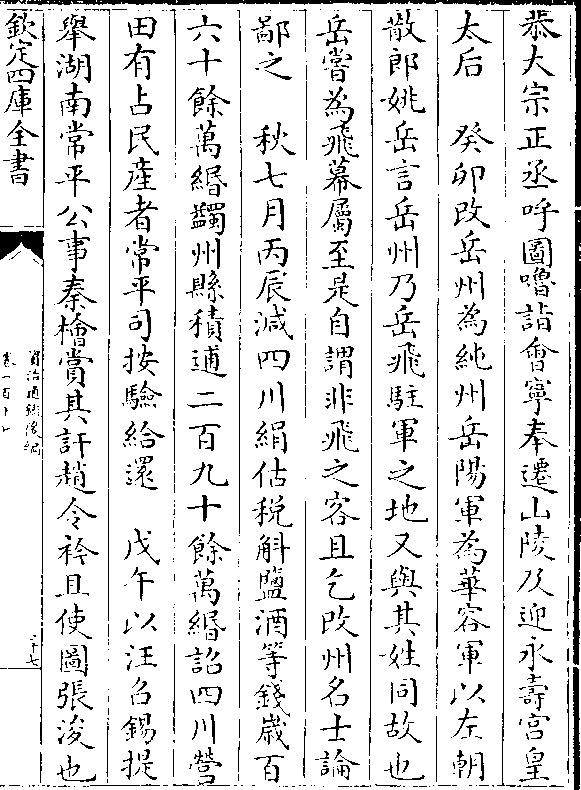 恭大宗正丞呼圖嚕詣會寧奉遷山陵及迎永壽宫皇
太后　癸卯改岳州為純州岳陽軍為華容軍以左朝
散郎姚岳言岳州乃岳飛駐軍之地又與其姓同故也
岳嘗為飛幕屬至是自謂非飛之客且乞改州名士論
鄙之　秋七月丙辰減四川絹估税斛鹽酒等錢歳百
六十餘萬緡蠲州縣積逋二百九十餘萬緡詔四川營
田有占民産者常平司按驗給還　戊午以汪召錫提
舉湖南常平公事秦檜賞其訐趙令衿且使圖張浚也
欽定四庫全書
資治通鑑後編
卷一百十七
二十七